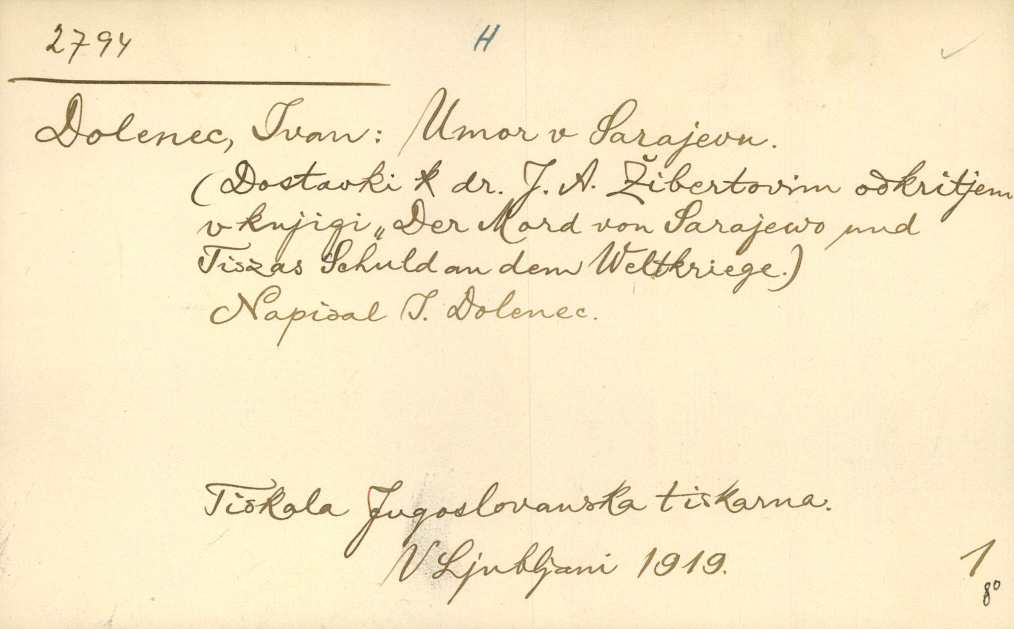 2794
H
Dolenec, Ivan: Umor v Sarajevu.
(Dostavki k dr. J. A. Žibertovim odkritjem
v knjigi „Der Mord von Sarajewo und
Tiszas Schuld an dem Weltkriege.)
Napisal I. Dolenec.
Tiskala Jugoslovanska tiskarna.
V Ljubljani 1919.
1
8°